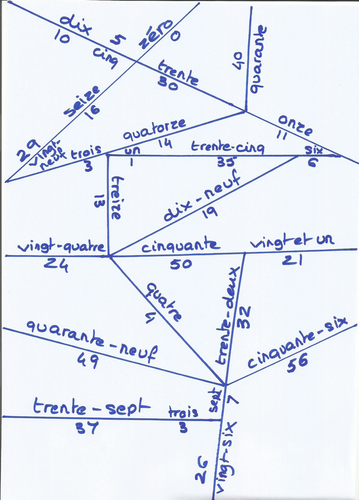 dix
10
5
cinq
zéro
0
trente
30
40
quarante
seize
16
29
vingt-neuf
quatorze
14
onze
11
trois
3
un
1
trente-cinq
35
six
6
treize
13
dix-neuf
19
vingt-quatre
24
cinquante
50
vingt et un
21
quatre
4
trente-deux
32
quarante-neuf
49
cinquante-six
56
sept
7
trente-sept
37
trois
3
26
vingt-six